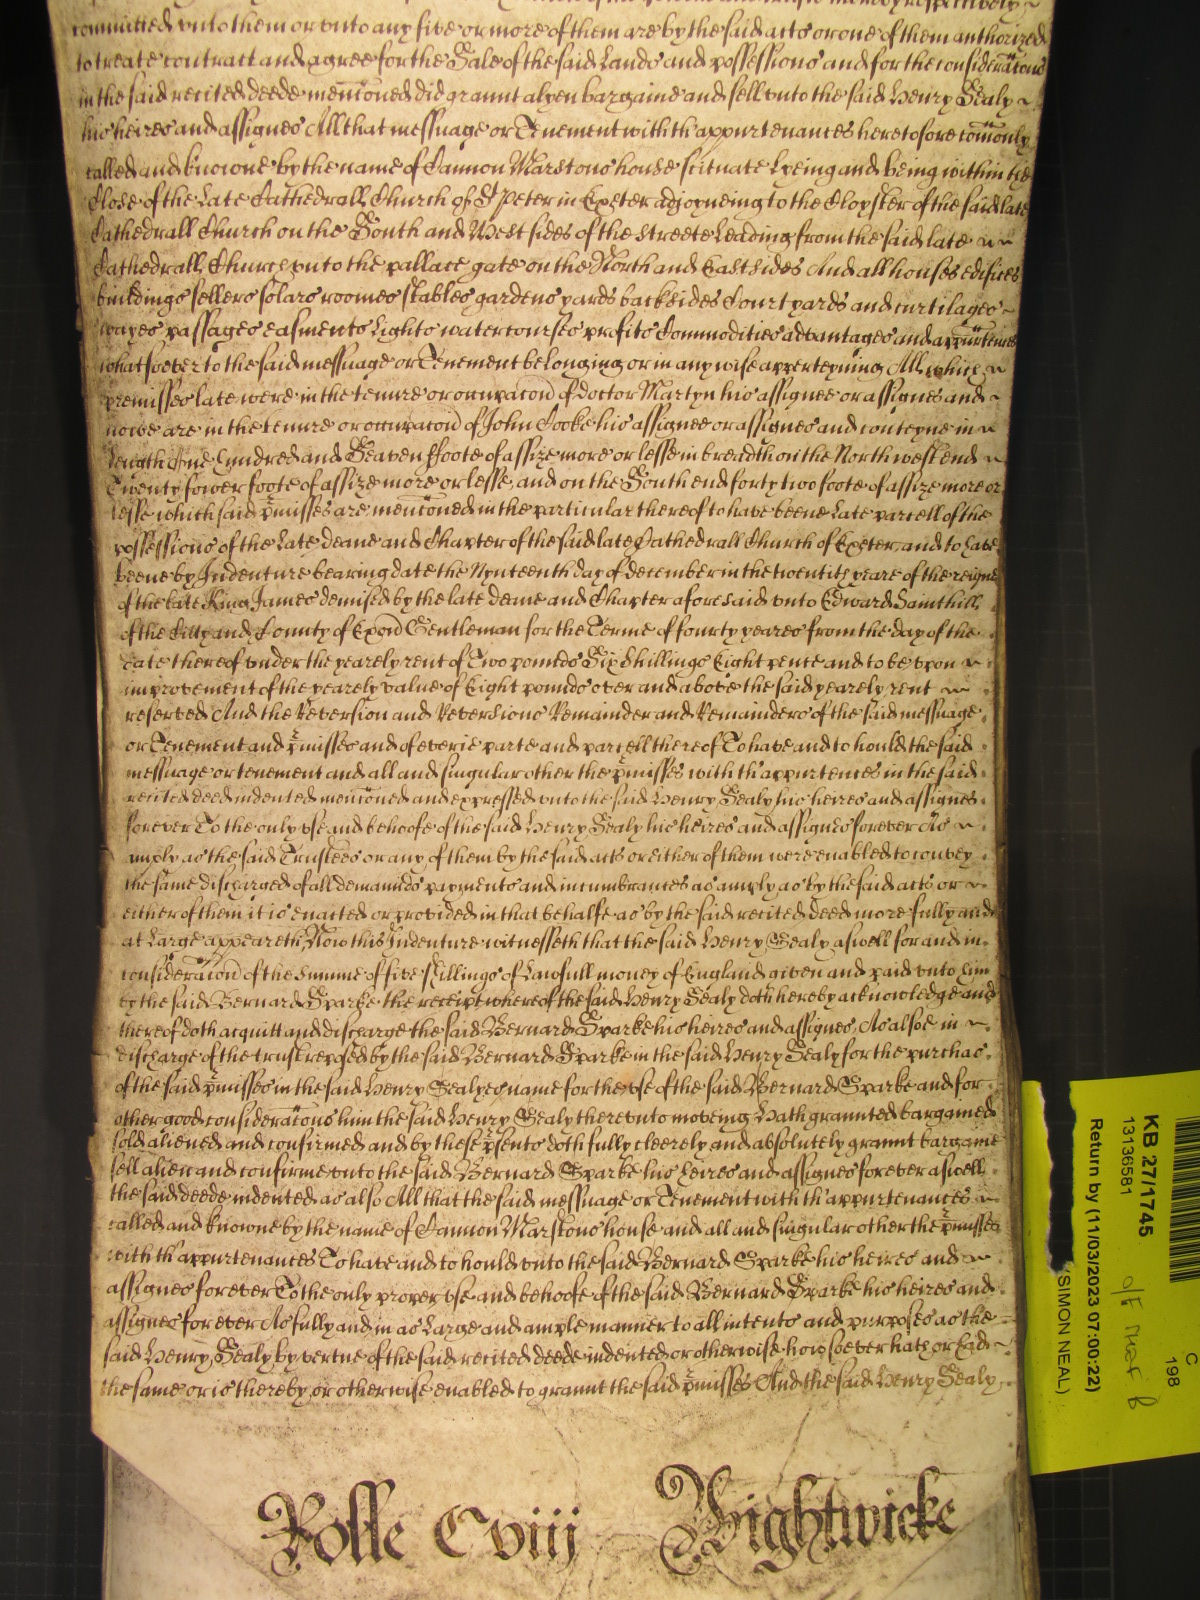 committed vnto them or vnto any five or more of them are by the said acts or one of them authorized
to treate contract and agree for the Sale of the said Lands and possessions and for the consideracons
in the said recited deede mencioned did graunt alyen bargaine and sell vnto the said Henry Sealy
his heires and assignes All that messuage or Tenement with th'appurtenances heretofore comonly
called and knowne by the name of Cannon Marstons house scituate Lyeing and being within the
Close of the Late Cathedrall Church of St Peter in Exeter adjoyneing to the Cloyster of the said late
Cathedrall Church on the South and West sides of the streete Leading from the said late
Cathedrall Church vnto the pallace gate on the North and East sides And all houses edifices
buildings sellers solars roomes stables gardens yards backsides Court yards and curtilages
wayes passages easments Lights watercourses profits Commodities advantages and appurtences
whatsoever to the said messuage or Tenement belonging or in any wise apperteyning All which
premisses late were in the tenure or occupacon of Doctor Martyn his assignee or assignes and
nowe are in the tenure or occupacon of John Cooke his assignee or assignes and conteyne in
Length One hundred and Seaven ffoote of assize more or lesse in breadth on the North west end
Twenty fower foote of assize more or lesse and on the South end forty two foote of assize more or
lesse which said p̄misses are mencioned in the particular thereof to have beene Late parcell of the
possessions of the Late deane and Chapter of the said late Cathedrall Church of Exeter and to have
beene by Indenture bearing date the Nynteenth day of december in the twentith yeare of the reigne
of the late King James demised by the late deane and Chapter aforesaid vnto Edward Sainthill
of the Citty and County of Exon Gentleman for the Terme of fourty yeares from the day of the
date thereof vnder the yearely rent of Two pounds Six Shillings Eight pence and to be vpon
improvement of the yearely value of Eight pounds over and above the said yearely rent
reserved And the Reversion and Reversions Remainder and Remainders of the said messuage
or Tenement and p̄misses and of everie parte and parcell thereof To have and to hould the said
messuage or tenement and all and singular other the p̄misses with th'appurtences in the said
recited deed indented mencioned and expressed vnto the said Henry Sealy his heires and assignes
forever To the only vse and behoofe of the said Henry Sealy his heires and assignes forever As
amply as the said Trustees or any of them by the said acts or either of them were enabled to convey
the same discharged of all demaunds payments and incumbrances as amply as by the said acts or
either of them it is enacted or provided in that behalfe as by the said recited deed more fully and
at Large appeareth Now this Indenture witnesseth that the said Henry Sealy aswell for and in
consideracon of the summe of five shillings of Lawfull money of England given and paid vnto him
by the said Bernard Sparke the receipt whereof the said Henry Sealy doth hereby acknowledge and
thereof doth acquitt and discharge the said Bernard Sparke his heires and assignes As alsoe in
discharge of the trust reposed by the said Bernard Sparke in the said Henry Sealy for the purchas
of the said p̄misses in the said Henry Sealyes name for the vse of the said Bernard Sparke and for
other good consideracons him the said Henry Sealy therevnto moveing Hath graunted bargained
sold aliened and confirmed and by these p̄sents doth fully cleerely and absolutely graunt bargaine
sell alien and confirme vnto the said Bernard Sparke his heires and assignes forever aswell
the said deede indented as also All that the said messuage or Tenement with th'appurtenances
called and knowne by the name of Cannon Marstons house and all and singular other the p̄misses
with th'appurtenances To have and to hould vnto the said Bernard Sparke his heires and
assignes forever To the only proper vse and behoofe of the said Bernard Sparke his heires and
assignes forever As fully and in as Large and ample manner to all intents and purposes as the
said Henry Sealy by vertue of the said recited deede indented or otherwise howsoever hath or had
the same or is thereby or otherwise enabled to graunt the said p̄misses And the said Henry Sealy
Rolle Cviij Wightwicke
KB 27/1745
13136581
Return by (11/03/2023 07:00:22)
(SIMON NEAL)
C
198